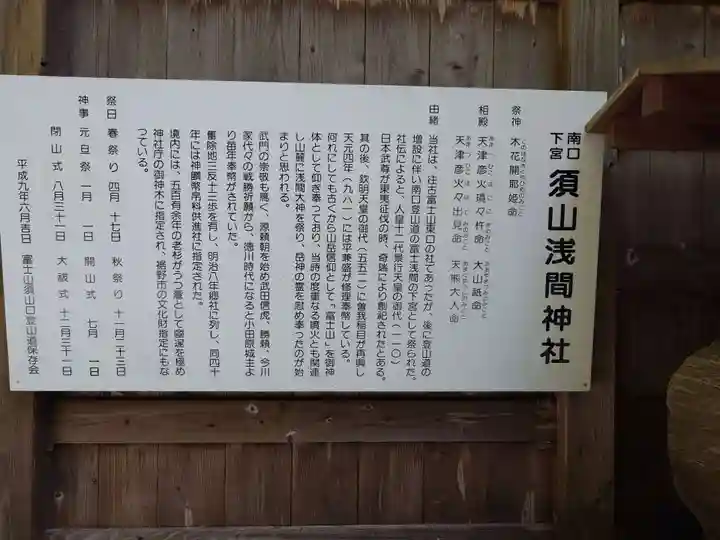 南口
下宮
須山浅間神社
祭神 木花開耶姫命
相殿 天津彦火瓊々杵命 大山祇命
天津彦火々出見命 天熊大人命
由緒 当社は、往古富士山東口の社であったが、後に登山道の
増設に伴い南口登山道の富士浅間の下宮として祭られた。
社伝によると、人皇十二代景行天皇の御代(一一〇)
日本武尊が東夷征伐の時、奇瑞により創祀されたとある。
其の後、欽明天皇の御代(五五二)に曽我稲目が再興し
天元四年(九八一)には平兼盛が修理奉幣している。
何れにしても古くから山岳信仰として「富士山」を御神
体として仰ぎ奉っており、当時の度重なる噴火とも関連
し山麓に浅間大神を祭り、岳神の霊を慰め奉ったのが始
まりと思われる。
武門の崇敬も篤く、源頼朝を始め武田信虎、勝頼、今川
家代々の戦勝祈願から、徳川時代になると小田原城主よ
り毎年奉幣がされていた。
除地三反十二歩を有し、明治八年郷社に列し、同四十
年には神饌幣帛料供進社に指定された。
境内には、五百有余年の老杉がうつ蒼として幽邃を極め
神社庁の御神木に指定され、裾野市の文化財指定にもな
っている。
祭日 春祭り 四月 十七日 秋祭り 十一月二十三日
神事 元旦祭 一月 一日 開山式 七月 一日
閉山式 八月三十一日 大祓式 十二月三十一日
平成九年六月吉日 富士山須山口登山道保存会